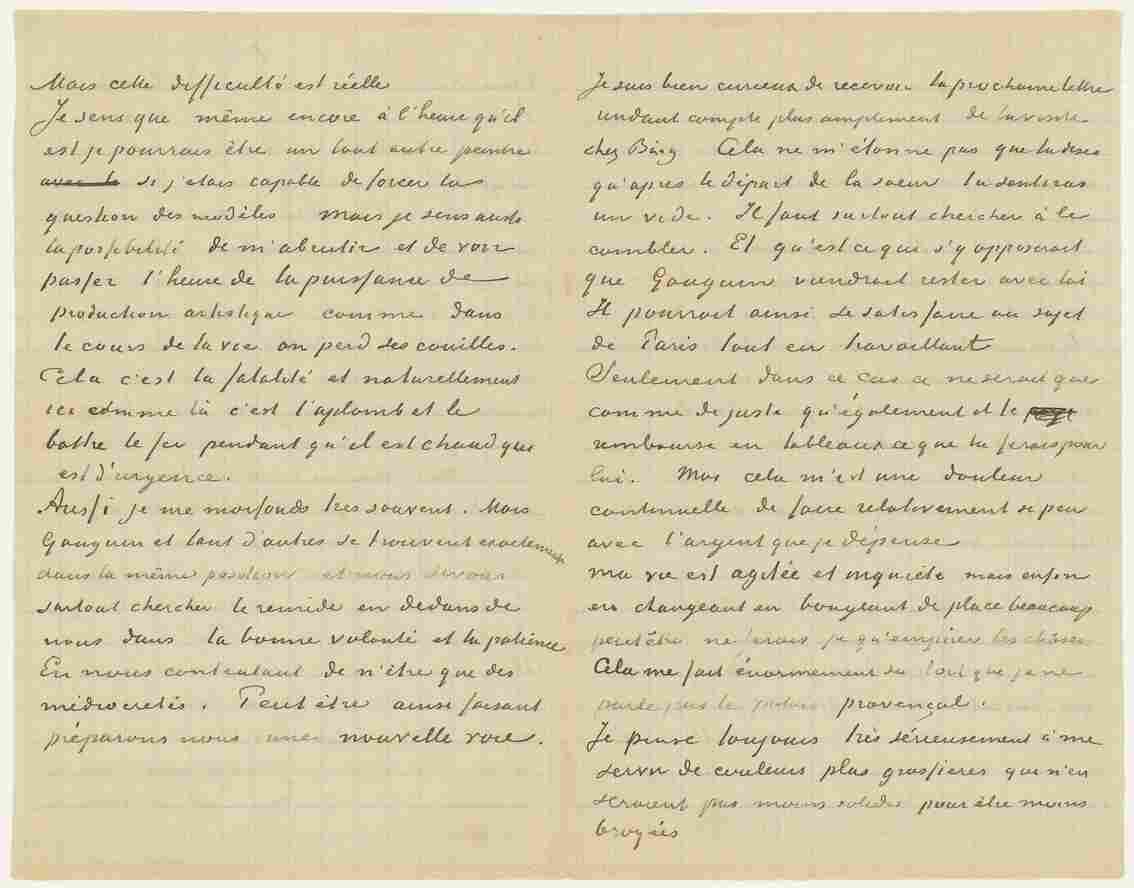 Mais cette difficulté est réelle
Je sens que même encore à l'heure qu'il
est je pourrais être un tout autre peintre
si j'etais capable de forcer la
question des modèles mais je sens aussi
la possibilité de m'abrutir et de voir
passer l'heure de la puissance de
production artistique comme dans
le cours de la vie on perd ses couilles.
Cela c'est la fatalité et naturellement
ici comme là c'est l'aplomb et le
battre le fer pendant qu'il est chaud qui
est d'urgence.
Aussi je me morfonds très souvent. Mais
Gauguin et tant d'autres se trouvent exactement
dans la même position et nous devons
surtout chercher le remède en dedans de
nous dans la bonne volonté et la patience
En nous contentant de n'être que des
médiocrités. Peut être ainsi faisant
préparons nous une nouvelle voie.
Je suis bien curieux de recevoir ta prochaine lettre
rendant compte plus amplement de ta visite
chez Bing Cela ne m'étonne pas que tu dises
qu'après le départ de la soeur tu sentiras
un vide. Il faut surtout chercher à le
combler. Et qu'est ce qui s'y opposerait
que Gauguin viendrait rester avec toi
Il pourrait ainsi se satisfaire au sujet
de Paris tout en travaillant
Seulement dans ce cas ce ne serait que
comme de juste qu'également il te
rembourse en tableaux ce que tu ferais pour
lui. Mais cela m'est une douleur
continuelle de faire relativement si peu
avec l'argent que je dépense
ma vie est agitée et inquiète mais enfin
en changeant en bougeant de place beaucoup
peutêtre ne ferais je qu'empirer les choses
Cela me fait énormement du tort que je ne
parle pas le patois provençal.
Je pense toujours très sérieusement à me
servir de couleurs plus grossières qui n'en
seraient pas moins solides pour être moins
broyées